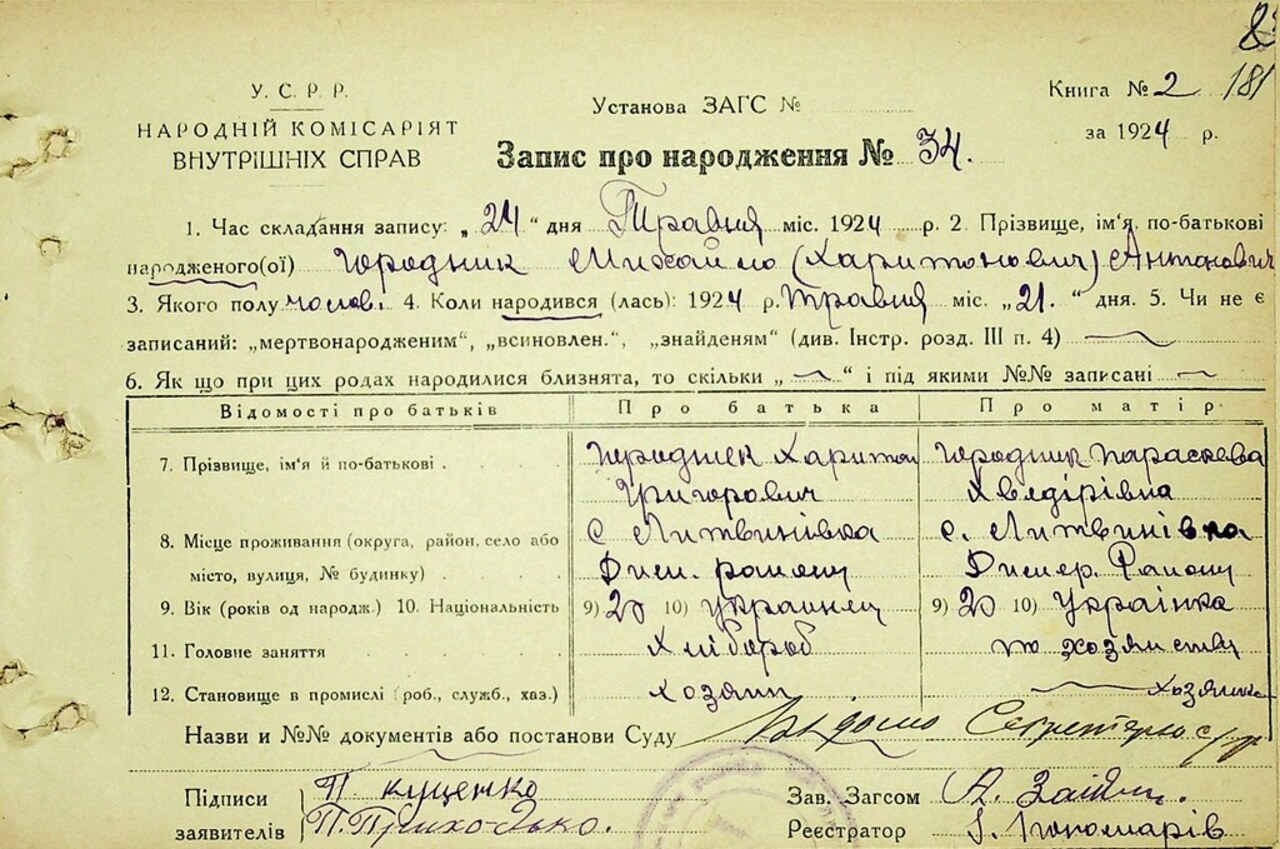 8
181
У. С. Р. Р.
НАРОДНІЙ КОМІСАРІЯТ
ВНУТРІШНІХ СПРАВ
Установа ЗАГС №
Книга № 2
за 1924 р.
Запис про народження № 34.
1. Час складання запису: „ 24 “ дня Травня міс. 1924 р. 2. Прізвище, ім'я, по-батькові
народженого(ої) Городник Михайло (Харитонович) Антонович
3. Якого полу чолов. 4. Коли народився (лась): 1924 р. Травня міс. „ 21. “ дня. 5. Чи не є
записаний: „мертвонародженим“, „всиновлен.“, „знайденям“ (див. Інстр. розд. III п. 4)
6. Як що при цих родах народилися близнята, то скільки „ “ і під якими №№ записані
Відомості про батьків Про батька Про матір
7. Прізвище, ім'я й по-батькові Городник Харитон Городник Параскева
Григорович Хведірівна
8. Місце проживання (округа, район, село або с Литвинівка с. Литвинівка
місто, вулиця, № будинку) Дим. району Димер. Району
9. Вік (років од народж.) 10. Національність 9) 20 10) Украинец 9) 20 10) Українка
11. Головне заняття Хлібороб по хозяству
12. Становище в промислі (роб., служб., хаз.) хозяин хозяйка
Назви и №№ документів або постанови Суду Відомо Секретерю с/р
Підписи П. Куценко Зав. Загсом А.
заявителів П. Приходько. Реєстратор І. Пономарів